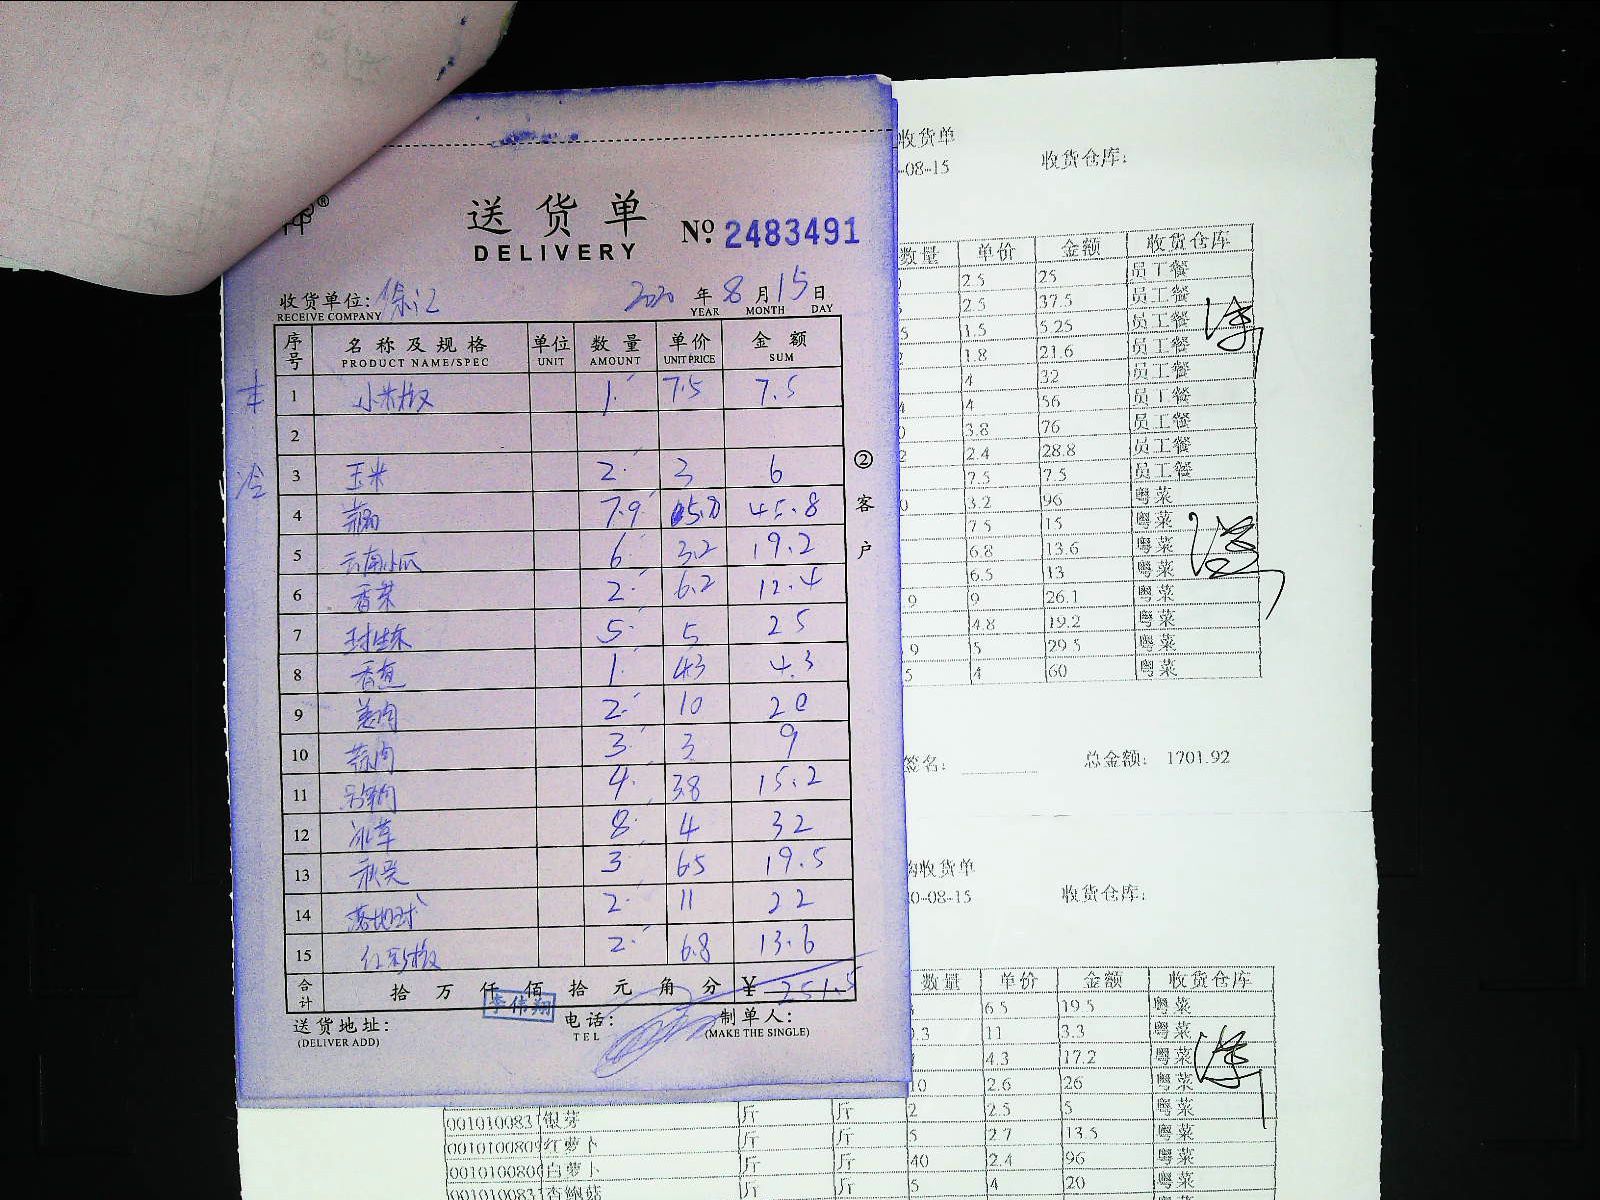 送货单
DELIVERY
№ 2483491
收货单位:
RECEIVE COMPANY
2020 年 8 月 15 日
YEAR MONTH DAY
序号 名称及规格 单位 数量 单价 金额
PRODUCT NAME/SPEC UNIT AMOUNT UNIT PRICE SUM
1 小米椒 1 7.5 7.5
2
冷
3 玉米 2 3 6
4 7.9 5.8 45.8
5 云南小瓜 6 3.2 19.2
6 香菜 2 6.2 12.4
7 5 5 25
8 香葱 1 4.3 4.3
9 姜肉 2 10 20
10 蒜肉 3 3 9
11 4 3.8 15.2
12 冰草 8 4 32
13 秋葵 3 6.5 19.5
14 2 11 22
15 红彩椒 2 6.8 13.6
② 客户
合计 拾 万 仟 佰 拾 元 角 分 ¥ 251.5
李伟翔
送货地址: 电话: 制单人:
(DELIVER ADD) TEL (MAKE THE SINGLE)
收货单
-08-15 收货仓库:
数量 单价 金额 收货仓库
2.5 25 员工餐
2.5 37.5 员工餐
5 1.5 5.25 员工餐
2 1.8 21.6 员工餐
4 32 员工餐
4 4 56 员工餐
0 3.8 76 员工餐
2 2.4 28.8 员工餐
7.5 7.5 员工餐
0 3.2 96 粤菜
7.5 15 粤菜
6.8 13.6 粤菜
6.5 13 粤菜
9 9 26.1 粤菜
4.8 19.2 粤菜
9 5 29.5 粤菜
5 4 60 粤菜
签名: 总金额: 1701.92
购收货单
0-08-15 收货仓库:
数量 单价 金额 收货仓库
6.5 19.5 粤菜
0.3 11 3.3 粤菜
4.3 17.2 粤菜
10 2.6 26 粤菜
001010083 银芽 斤 斤 2 2.5 5 粤菜
001010080 红萝卜 斤 斤 5 2.7 13.5 粤菜
001010080 白萝卜 斤 斤 40 2.4 96 粤菜
001010083 杏鲍菇 斤 斤 5 4 20 粤菜